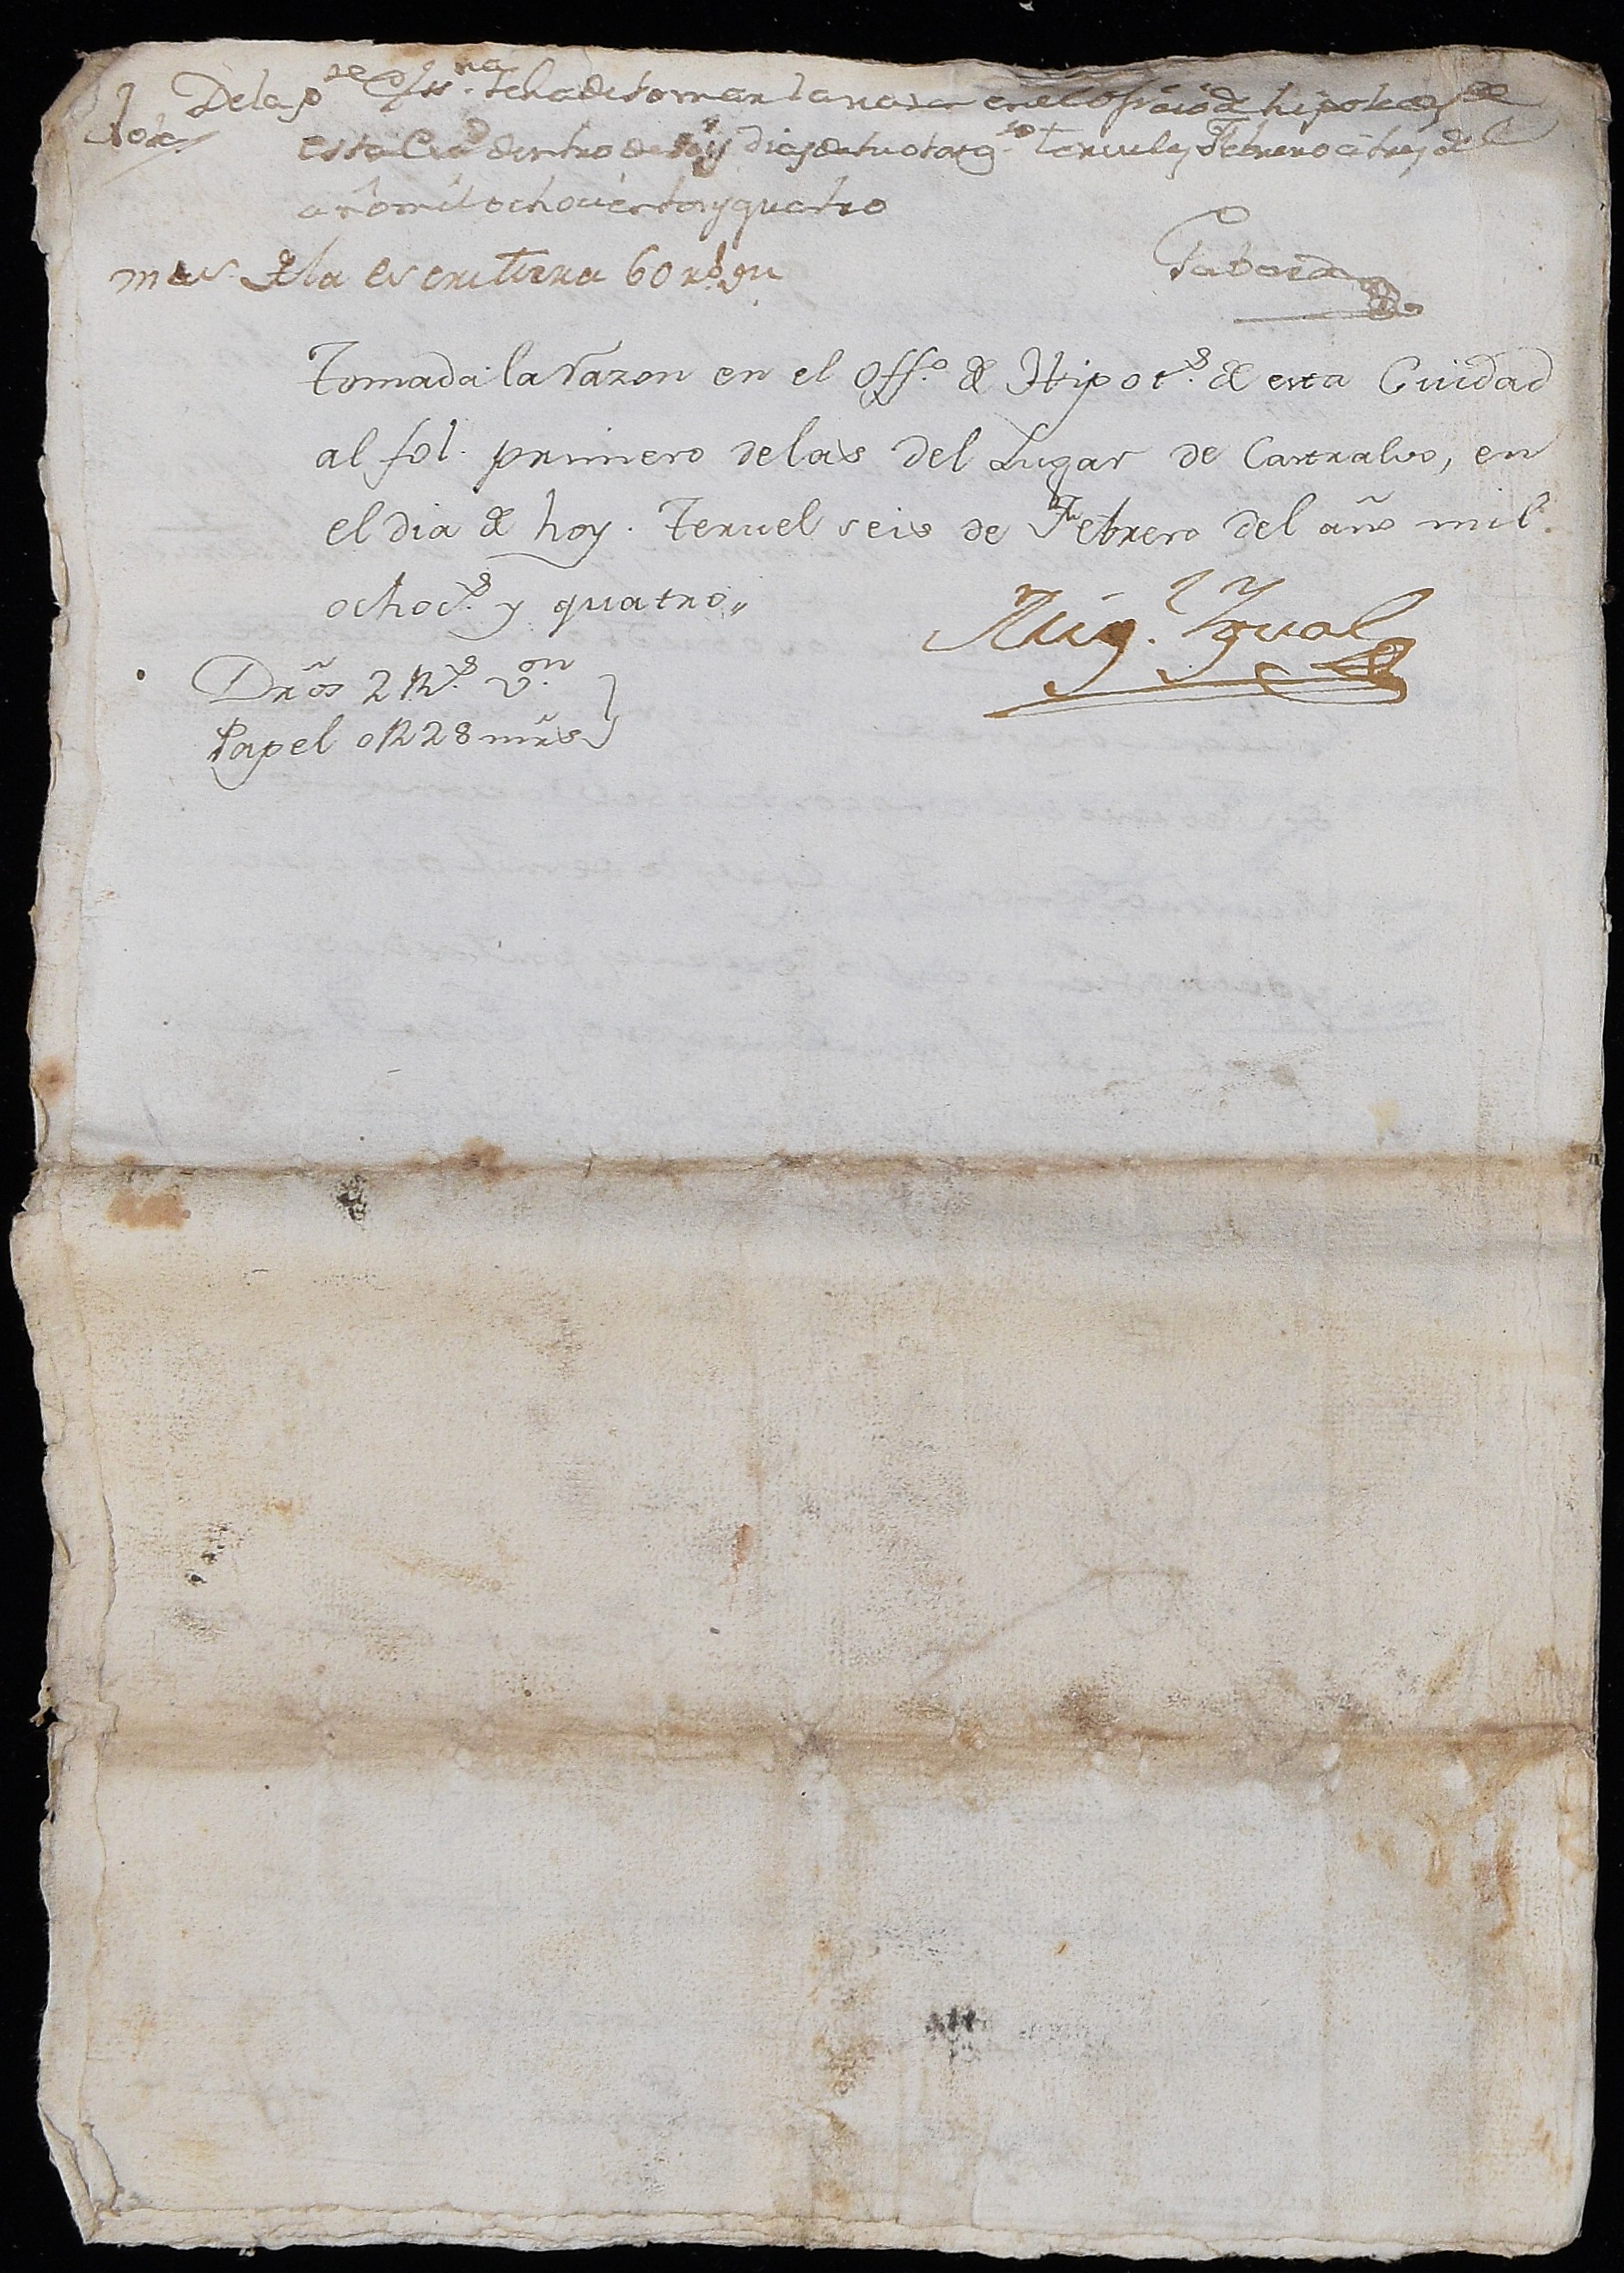 Nota De la p.te Ess.ra se ha de tomar la razon en el oficio de hipotecas de
esta Ciu.d dentro de seis dias de su otorg.to Teruel y Febrero a tres del
año mil ochocientos y quatro
mas de la escritura 60 r.s
Taboada
Tomada la razon en el Off.o de Hipot.s de esta Ciudad
al fol. primero de las del Lugar de Castralvo, en
el dia de hoy. Teruel seis de Febrero del año mil
ochoc.s y quatro,,
Mig. Ygual
Dr̃os 2 R.s v.on
Papel 0 R 28 mr̃s